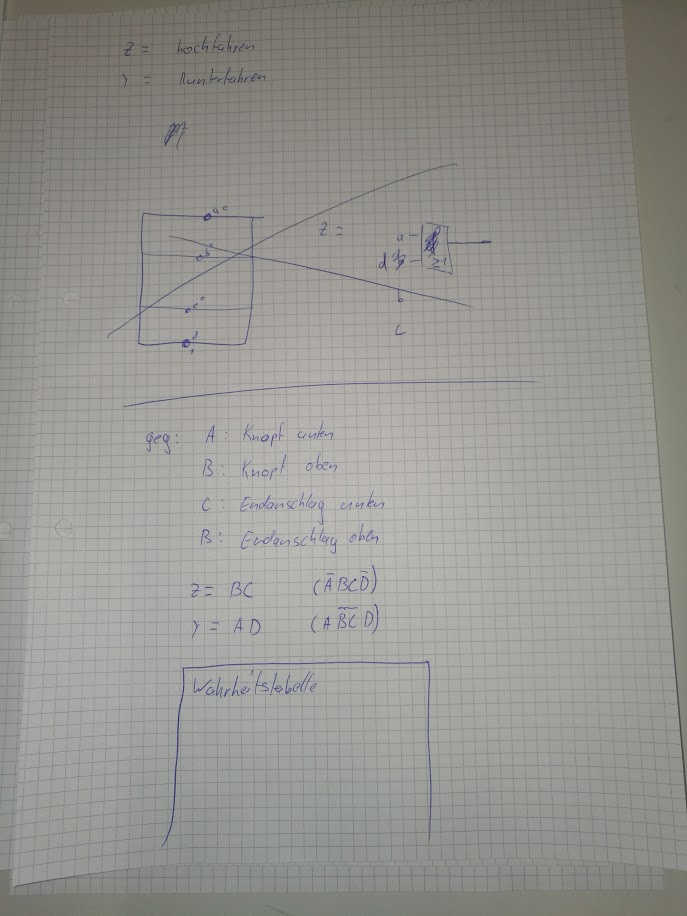 Z = hochfahren
Y = Runterfahren
a
b
c
d
Z =
a
d
≥1
b
C
geg: A: Knopf unten
B: Knopf oben
C: Endanschlag unten
B: Endanschlag oben
Z = BC (A̅BCD̅)
Y = AD (AB̅C̅D)
Wahrheitstabelle